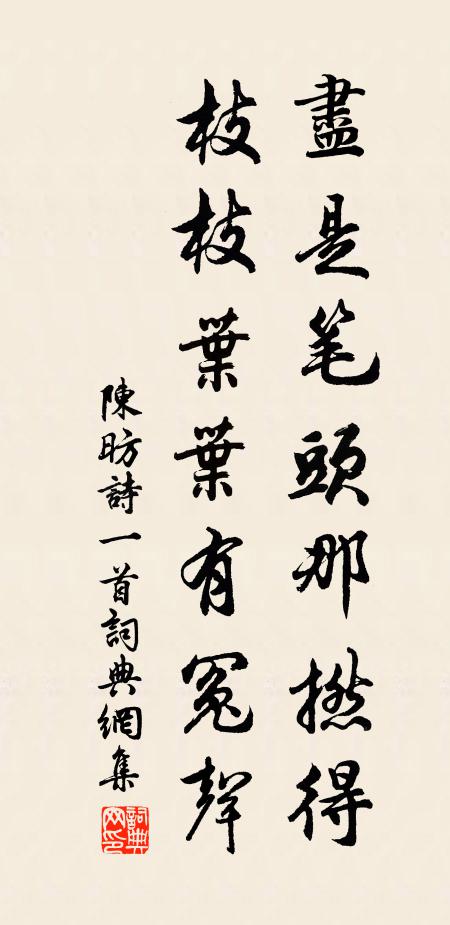 盡是笔頭那撚得
枝枝葉葉有冤聲
陳昉詩一首詞典網集
詞典网印